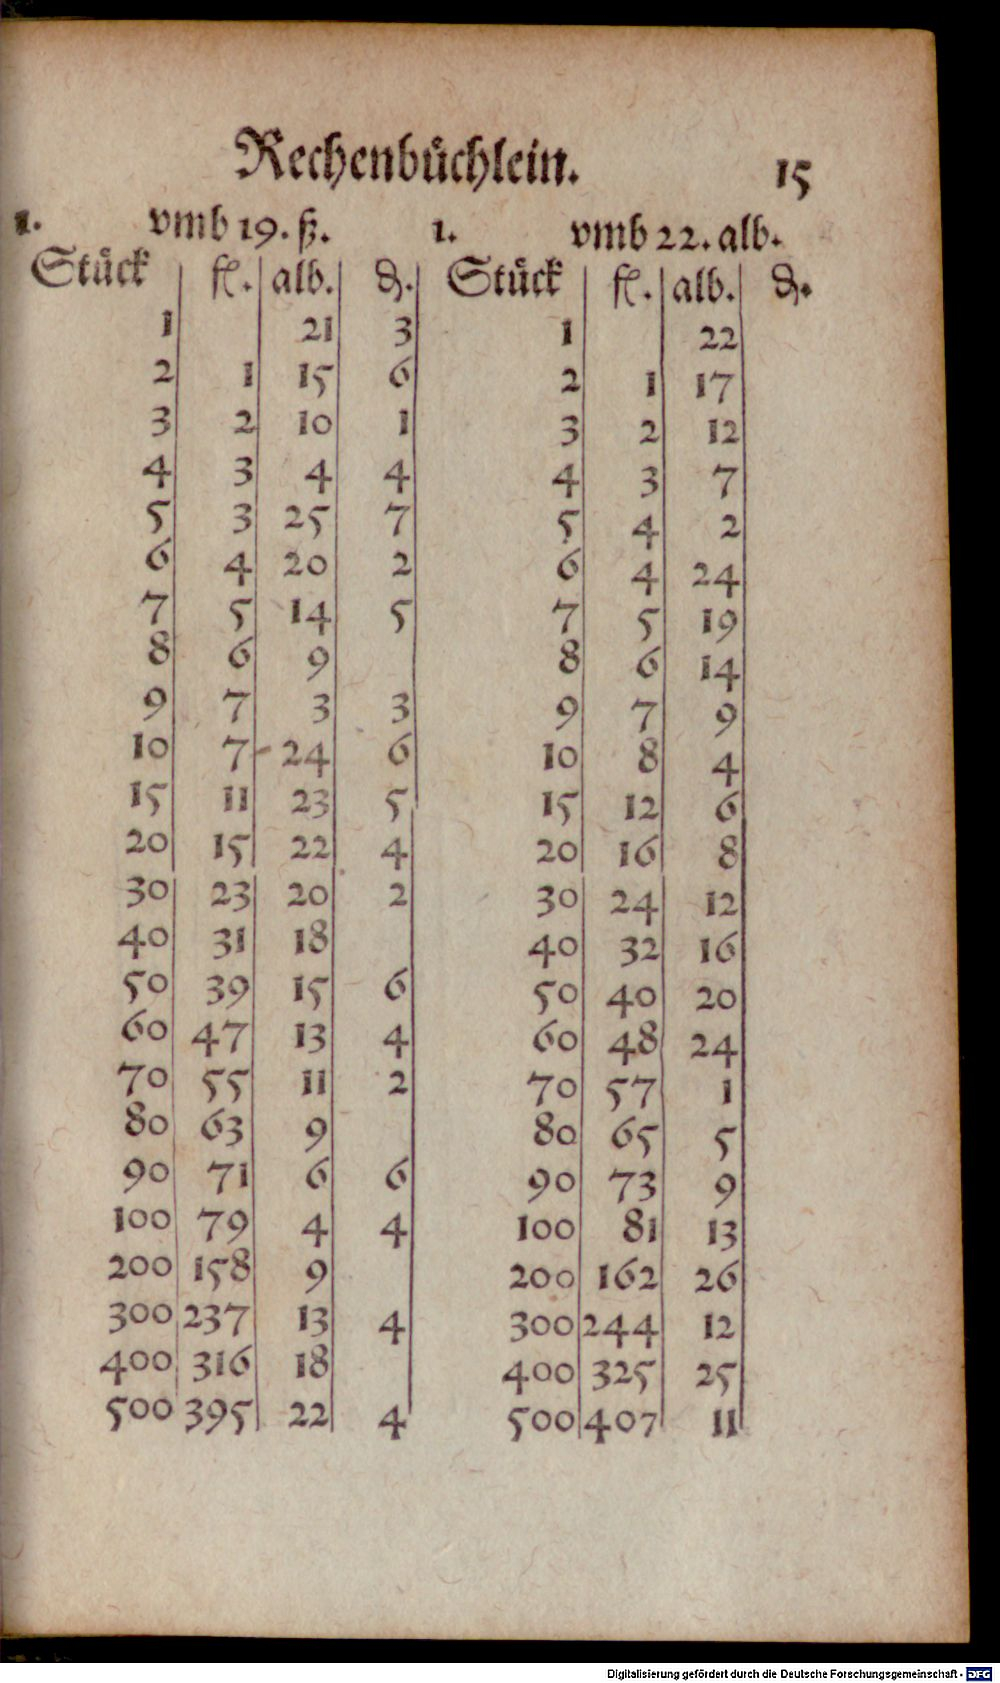 Rechenbüchlein. 15
1. vmb 19. ß. 1. vmb 22. alb.
Stück fl. alb. ₰. Stück fl. alb. ₰.
1 21 3 1 22
2 1 15 6 2 1 17
3 2 10 1 3 2 12
4 3 4 4 4 3 7
5 3 25 7 5 4 2
6 4 20 2 6 4 24
7 5 14 5 7 5 19
8 6 9 8 6 14
9 7 3 3 9 7 9
10 7 24 6 10 8 4
15 11 23 5 15 12 6
20 15 22 4 20 16 8
30 23 20 2 30 24 12
40 31 18 40 32 16
50 39 15 6 50 40 20
60 47 13 4 60 48 24
70 55 11 2 70 57 1
80 63 9 80 65 5
90 71 6 6 90 73 9
100 79 4 4 100 81 13
200 158 9 200 162 26
300 237 13 4 300 244 12
400 316 18 400 325 25
500 395 22 4 500 407 11
Digitalisierung gefördert durch die Deutsche Forschungsgemeinschaft - DFG